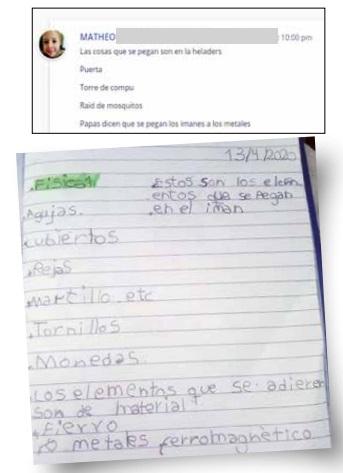 MATHEO
10:00 pm
Las cosas que se pegan son en la heladers
Puerta
Torre de compu
Raid de mosquitos
Papas dicen que se pegan los imanes a los metales
13/4/2020
.Fisica
Estos son los elem
entos que se pegan
en el iman
.Agujas.
.cubiertos
.Rejas
.martillo etc
.Tornillos
.Monedas.
.Los elementos que se adieren
son de material
Fierro
o metales ferromagnètico